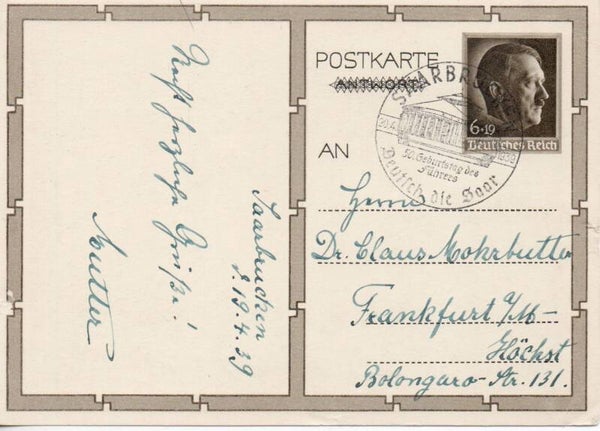 Recht herzliche
Grüße!
Mutter
Saarbrücken
d. 19.4.39
POSTKARTE
ANTWORT
AN
6+19
Deutsches Reich
20.4.
1939
50. Geburtstag des
Führers
Deutsch die Saar
Herrn
Dr. Claus Mohrbutter
Frankfurt a/M-
Höchst
Bolongaro-Str. 131.